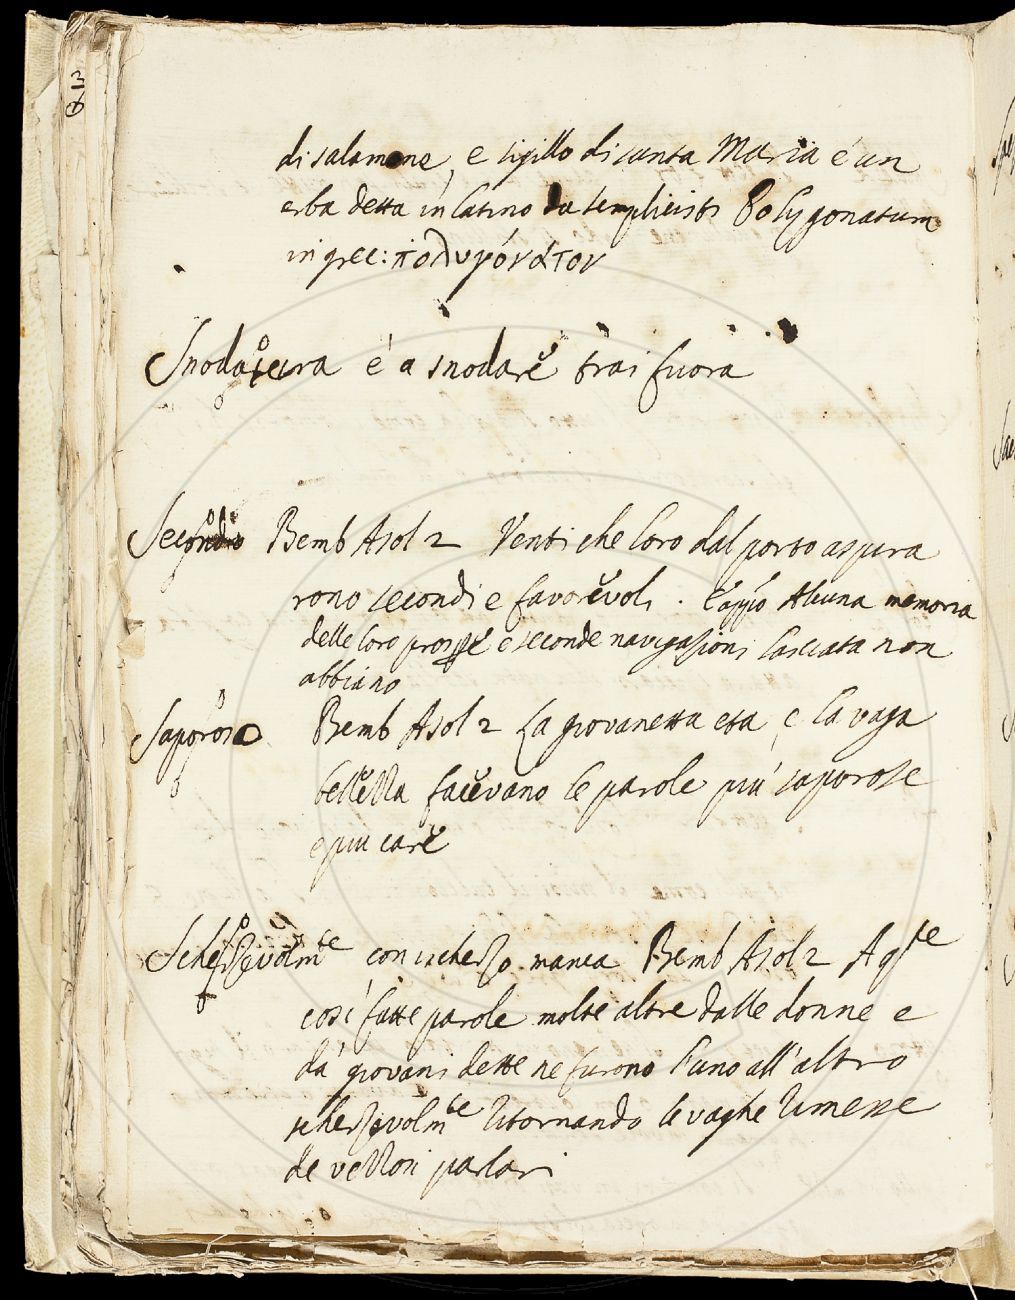 di salamone, e sigillo di santa Maria é un
erba detta in latino da semplicisti Polygonatum
in gree: πολυγόνατον
Snodatura é a snodare trai fuora
Secondo Bemb Asol 2 Venti che loro dal porto aspira
rono secondi e favorevoli. E appo Alcuna memoria
delle loro prospe e seconde navigazioni lasciata non
abbiano
Saporoso Bemb Asol 2 La giovanetta eta, e la vaga
bellezza facevano le parole più saporose
e piu care
Scherzevolmte con ischerzo. manca Bemb Asol 2 A qste
così fatte parole molte altre dalle donne e
dá giovani dette ne furono l'uno all'altro
scherzevolmte ritornando le vaghe rimesse
de vezzosi parlari